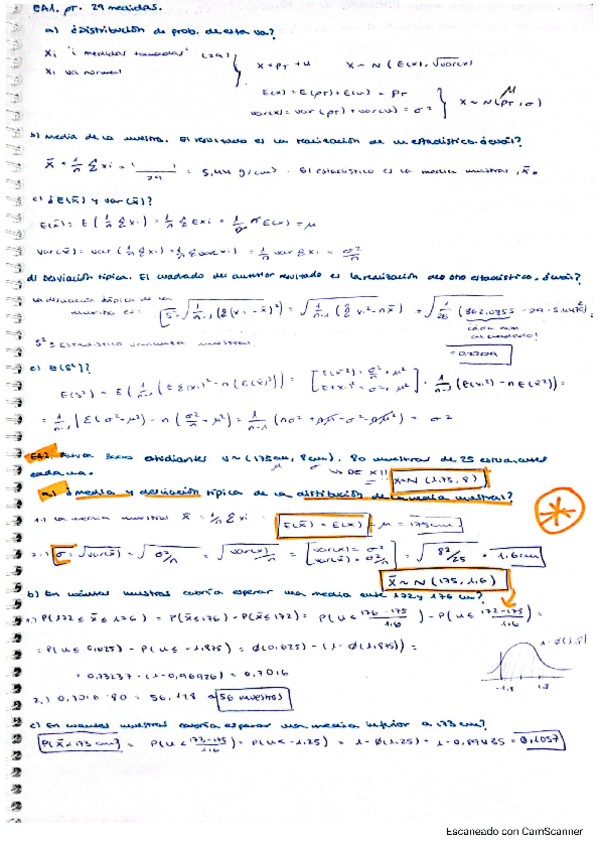 EA1. pr. 29 medidas.
a) ¿Distribución de prob. de esta va?
Xi "i medidas tomadas" (29)
Xi va normal
X = PT + U X ~ N (E(x), √var(x))
E(x) = E(PT) + E(U) = PT
var(x) = var(PT) + var(U) = σ² X ~ N(PT, σ)
μ
b) Media de la muestra. El resultado es la realización de un estadístico. ¿cuál?
X̄ = 1/n Σ xi = (        )/29 = 5,44 g/cm³. El estadístico es la media muestral, X̄.
c) ¿E(X̄) y var(X̄)?
E(X̄) = E(1/n Σ xi) = 1/n Σ E xi = 1/n n E(x) = μ
Var(X̄) = var(1/n Σ xi) = 1/n² Σ var(xi) = 1/n var xi = σ²/n
d) Desviación típica. El cuadrado del anterior resultado es la realización de otro estadístico. ¿cuál?
La desviación típica de la muestra es: S = √1/n-1 (Σ(xi - x̄)²) = √1/n-1 (Σ xi² - n x̄) = √1/28 (862,0355 - 29 · 5,44²)
cada num al cuadrado!
S² = Estadístico varianza muestral
e) E(S²)?
E(S²) = E(1/n-1 (Σ E(xi)² - n(E(x̄)²)) = [E(x̄²) = σ²/n + μ² E(xi)² = σ² + μ²] · 1/n-1 (E(xi²) - n E(x̄²)) =
= 1/n-1 [Σ(σ² + μ²) - n(σ²/n + μ²)] = 1/n-1 (nσ² + nμ² - σ² - nμ²) = σ²
EA2. Altura 3000 estudiantes N ~ (175cm, 8cm). 80 muestras de 25 estudiantes
μ σ
cada una. X ~ N (1.75, 8)
a) ¿media y desviación típica de la distribución de la media muestral?
1.) La media muestral X̄ = 1/n Σ xi E(X̄) = E(X) = μ = 175cm
2.) σ = √var(X̄) = √σ²/n = √var(x)/n = [var(x) = σ² var(X̄) = σ²/n] = √8²/25 = 1.6cm
X̄ ~ N (175, 1.6)
b) En cuántas muestras cabría esperar una media entre 172 y 176 cm?
1.) P(172 ≤ X̄ ≤ 176) = P(X̄ ≤ 176) - P(X̄ ≤ 172) = P(U ≤ 176-175/1.6) - P(U ≤ 172-175/1.6) =
= P(U ≤ 0.625) - P(U ≤ -1.875) = Ø(0.625) - (1 - Ø(1.875)) =
= 0.73237 - (1 - 0.96926) = 0.7016
2.) 0.7016 · 80 = 56,128 ≈ 56 muestras
c) En cuántas muestras cabría esperar una media inferior a 173 cm?
P(X̄ ≤ 173 cm) = P(U ≤ 173-175/1.6) = P(U ≤ -1.25) = 1 - Ø(1.25) = 1 - 0.89435 = 0,1057
Escaneado con CamScanner